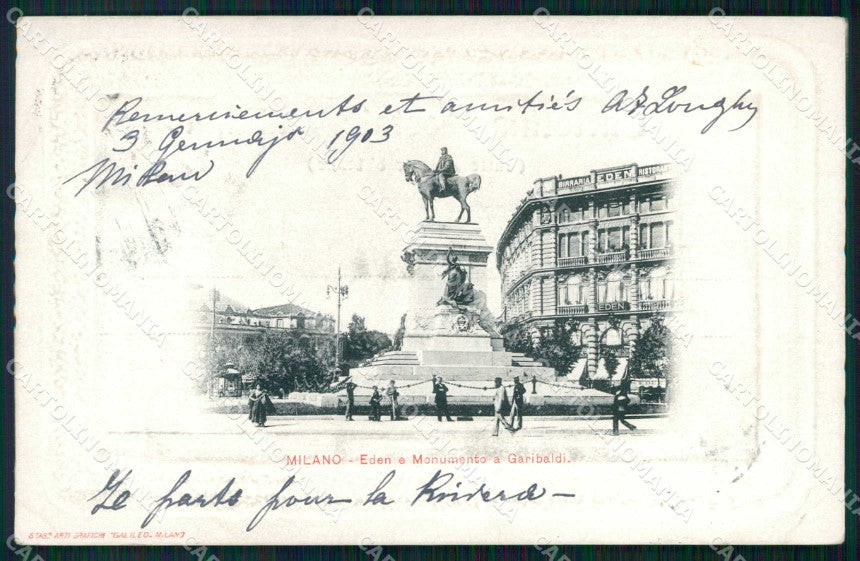 Remerciements et amitiés A Z Longhy
3 Gennajo 1903
Milan
BIRRARIA EDEN RISTORA
EDEN
MILANO - Eden e Monumento a Garibaldi.
Je parts pour la Riviera —
STAB? ARTI GRAFICHE "GALILEO" MILANO
CARTOLINOMANIA